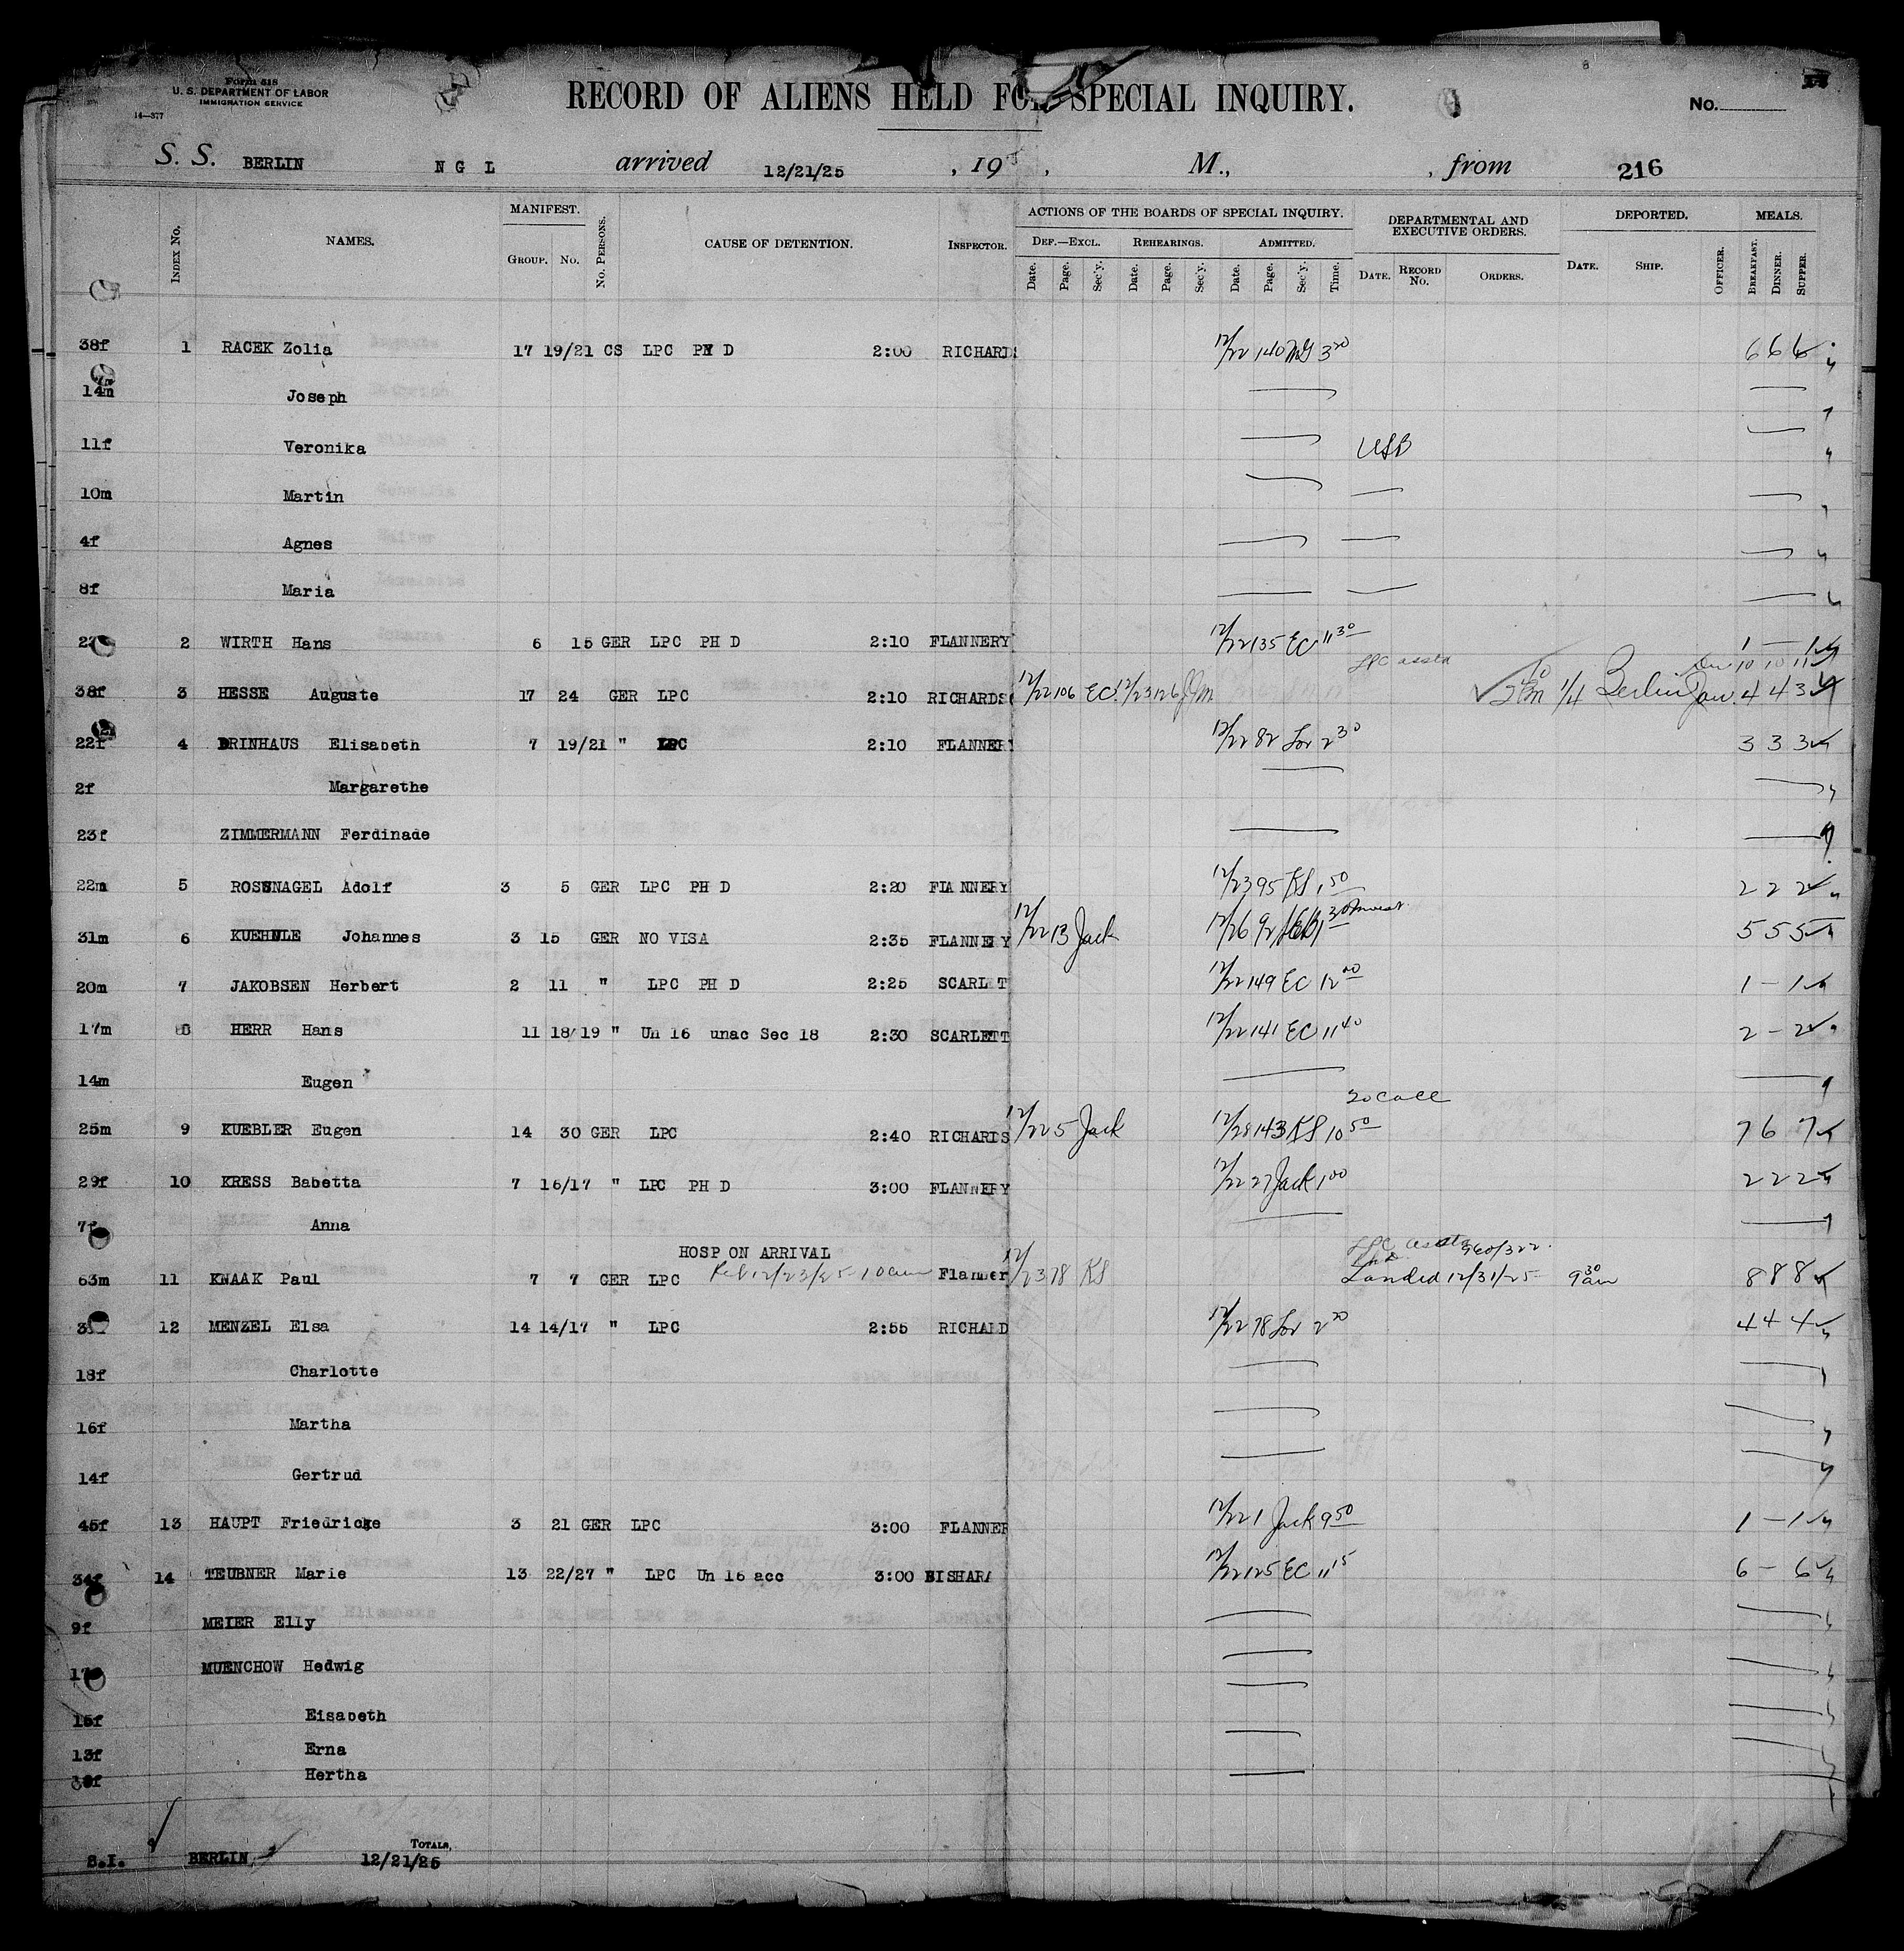 Form 518
U. S. DEPARTMENT OF LABOR
IMMIGRATION SERVICE
14—377
RECORD OF ALIENS HELD FOR SPECIAL INQUIRY.
No.
S. S. BERLIN N G L arrived 12/21/25 , 19 , M., , from 216
INDEX No. NAMES. MANIFEST. GROUP. No. No. PERSONS. CAUSE OF DETENTION. INSPECTOR.
ACTIONS OF THE BOARDS OF SPECIAL INQUIRY. DEPARTMENTAL AND EXECUTIVE ORDERS. DEPORTED. MEALS.
DEF.—EXCL. REHEARINGS. ADMITTED.
Date. Page. Sec'y. Date. Page. Sec'y. Date. Page. Sec'y. Time. DATE. RECORD No. ORDERS. DATE. SHIP. OFFICER. BREAKFAST. DINNER. SUPPER.
38f 1 RACEK Zolia 17 19/21 CS LPC PH D 2:00 RICHARDS 12/22 140 3 20 6 6 6
14m Joseph
11f Veronika USB
10m Martin
4f Agnes
8f Maria
2 WIRTH Hans 6 15 GER LPC PH D 2:10 FLANNERY 12/22 135 EC 11 30 1 — 1
LPC assta Dec 10 10 11
38f 3 HESSE Auguste 17 24 GER LPC 2:10 RICHARDS 12/22 106 EC 12/23 126 1/4 Berlin Jan. 4 4 3
22f 4 BRINHAUS Elisabeth 7 19/21 " LPC 2:10 FLANNERY 12/22 82 Lor 2 30 3 3 3
2f Margarethe
23f ZIMMERMANN Ferdinade
22m 5 ROSSNAGEL Adolf 3 5 GER LPC PH D 2:20 FLANNERY 12/23 95 KS 1 50 2 2 2
31m 6 KUEHNLE Johannes 3 15 GER NO VISA 2:35 FLANNERY 12/22 13 Jack 12/26 92 5 5 5
20m 7 JAKOBSEN Herbert 2 11 " LPC PH D 2:25 SCARLET T 12/22 149 EC 12 00 1 - 1
17m 8 HERR Hans 11 18/19 " Un 16 unac Sec 18 2:30 SCARLETT 12/22 141 EC 11 40 2 - 2
14m Eugen
25m 9 KUEBLER Eugen 14 30 GER LPC 2:40 RICHARDS 12/22 5 Jack 12/28 143 KS 10 50 7 6 7
29f 10 KRESS Babetta 7 16/17 " LPC PH D 3:00 FLANNERY 12/22 27 Jack 1 00 2 2 2
7f Anna
HOSP ON ARRIVAL LPC assta
63m 11 KNAAK Paul 7 7 GER LPC Rel 12/23/25 - 10am Flanner 12/23 78 KS Landed 12/31/25 9 30 am 8 8 8
12 MENZEL Elsa 14 14/17 " LPC 2:55 RICHALD 12/22 78 Lor 2 20 4 4 4
18f Charlotte
16f Martha
14f Gertrud
45f 13 HAUPT Friedricke 3 21 GER LPC 3:00 FLANNER 12/22 1 Jack 9 50 1 — 1
34f 14 TEUBNER Marie 13 22/27 " LPC Un 16 acc 3:00 BISHARA 12/22 125 EC 11 15 6 — 6
9f MEIER Elly
17 MUENCHOW Hedwig
15f Eisabeth
13f Erna
Hertha
TOTALS,
S.I. BERLIN 12/21/25